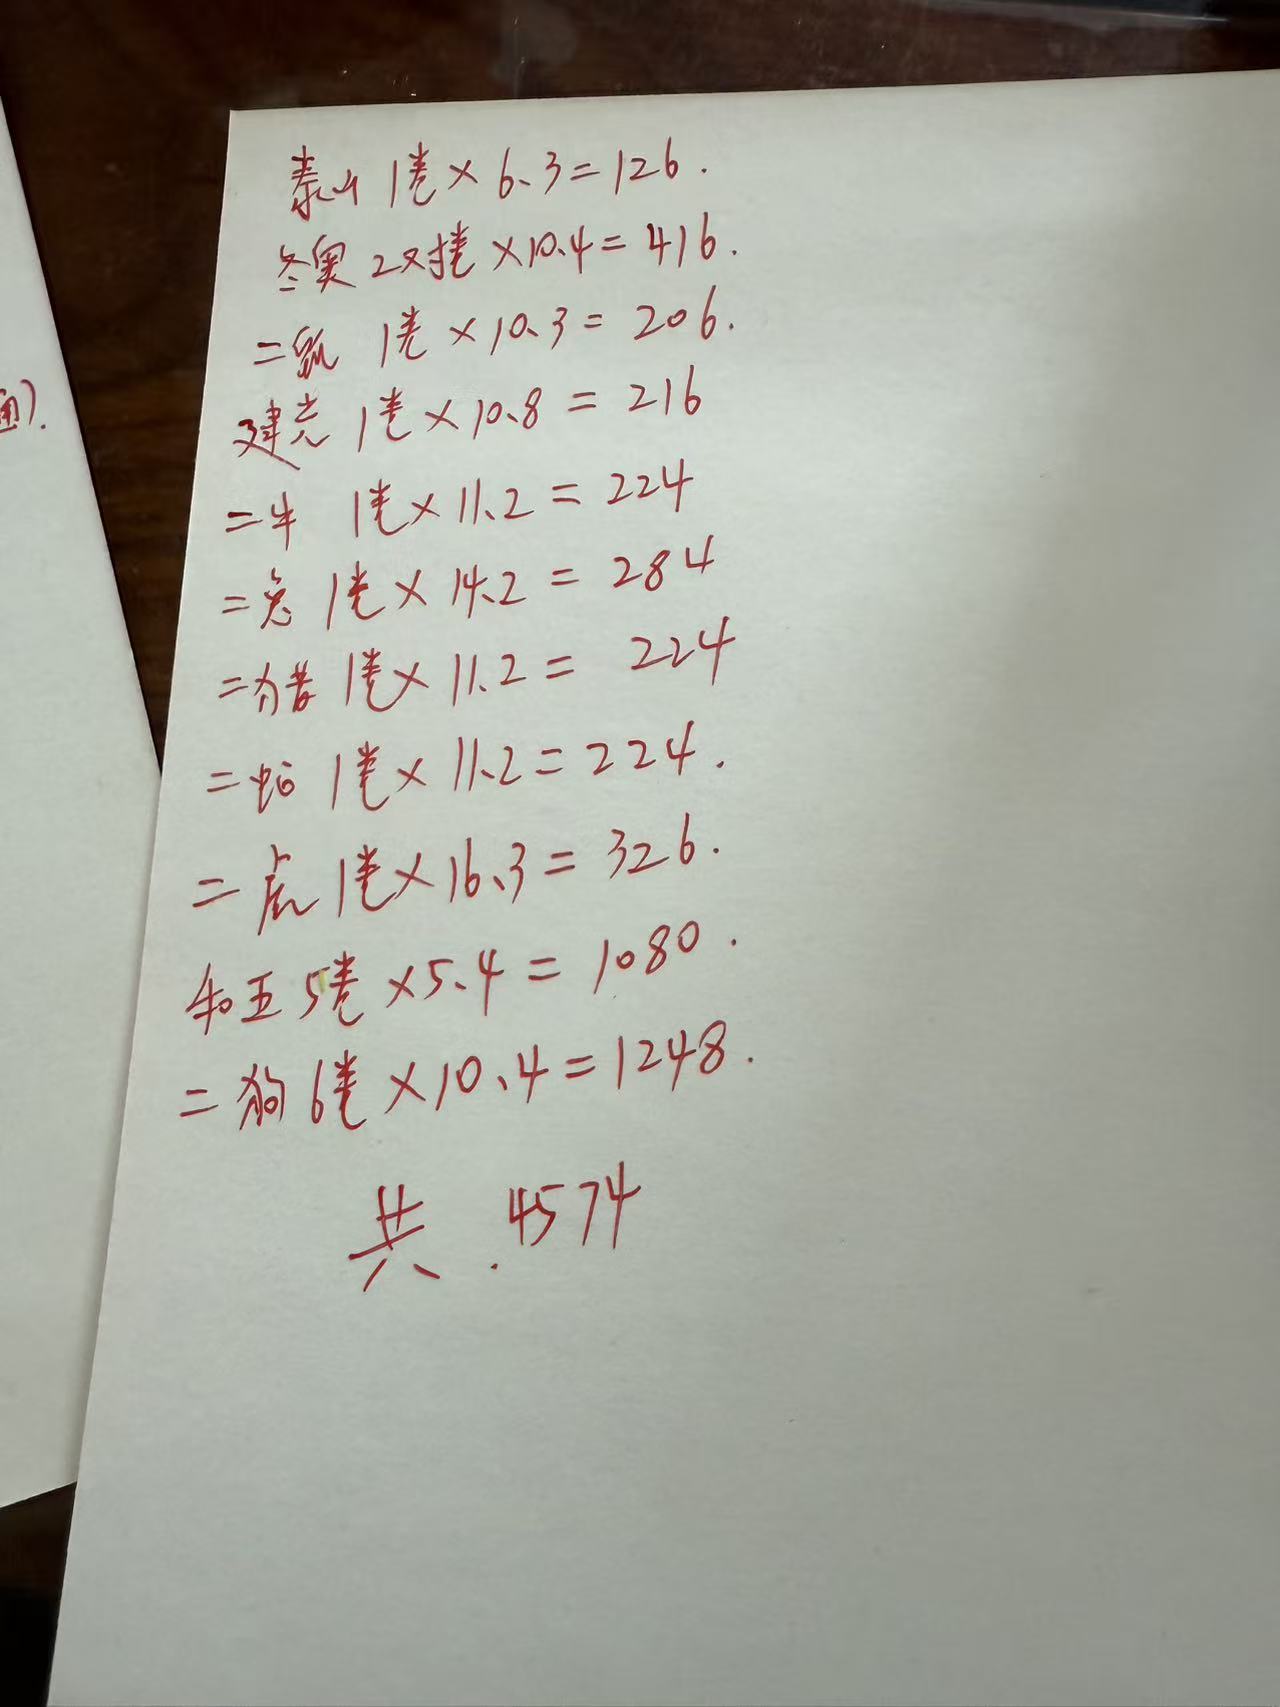 通).
泰山 1卷×6.3=126.
冬奥 2对卷×10.4=416.
二鼠 1卷×10.3=206.
建党 1卷×10.8=216
二牛 1卷×11.2=224
二兔 1卷×14.2=284
二猪 1卷×11.2=224
二蛇 1卷×11.2=224.
二虎 1卷×16.3=326.
和五 5卷×5.4=1080.
二狗 6卷×10.4=1248.
共.4574